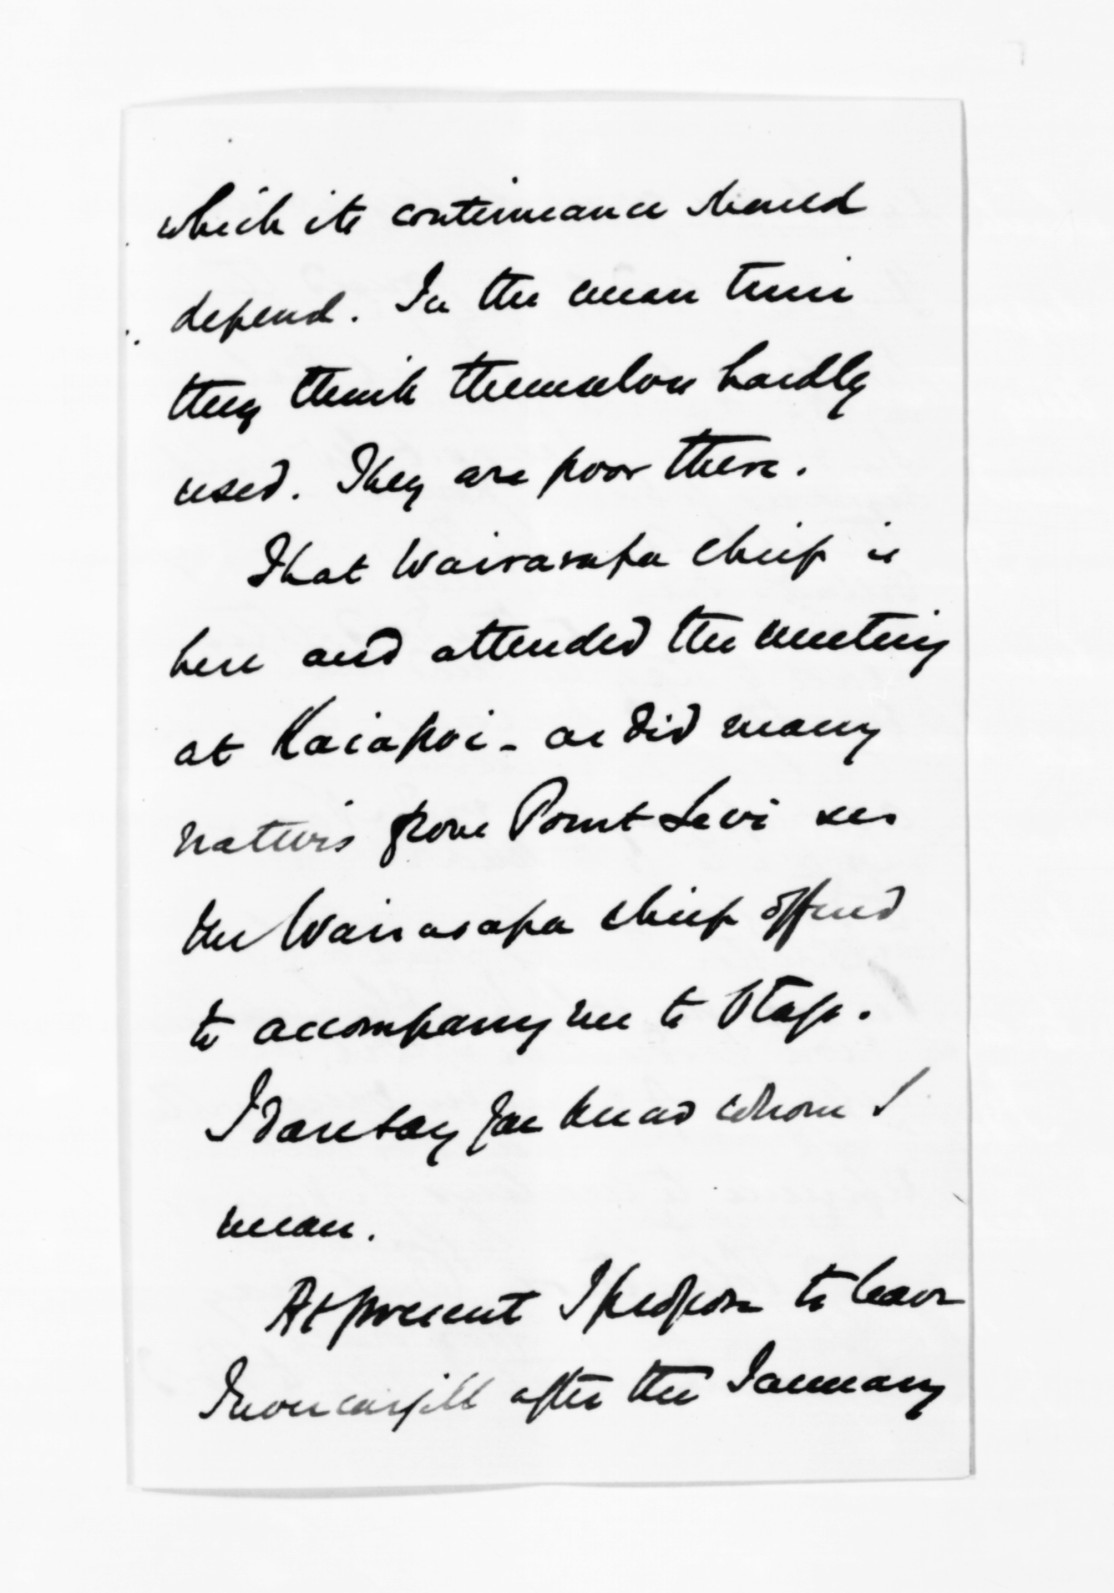 which its continuance should
depend. In the mean time
they think themselves hardly
used. They are poor there.
That Wairarapa chief is
here and attended the meeting
at Kaiapoi - as did many
natives from Port Levi
the Wairarapa chief offered
to accompany me to Otago.
I daresay you know whom I
mean.
At present I propose to leave
Invercargill after the January